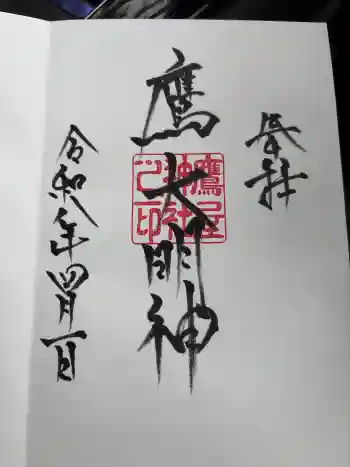 奉社
鷹大明神
鷹屋神社之印
令和八年四月一日